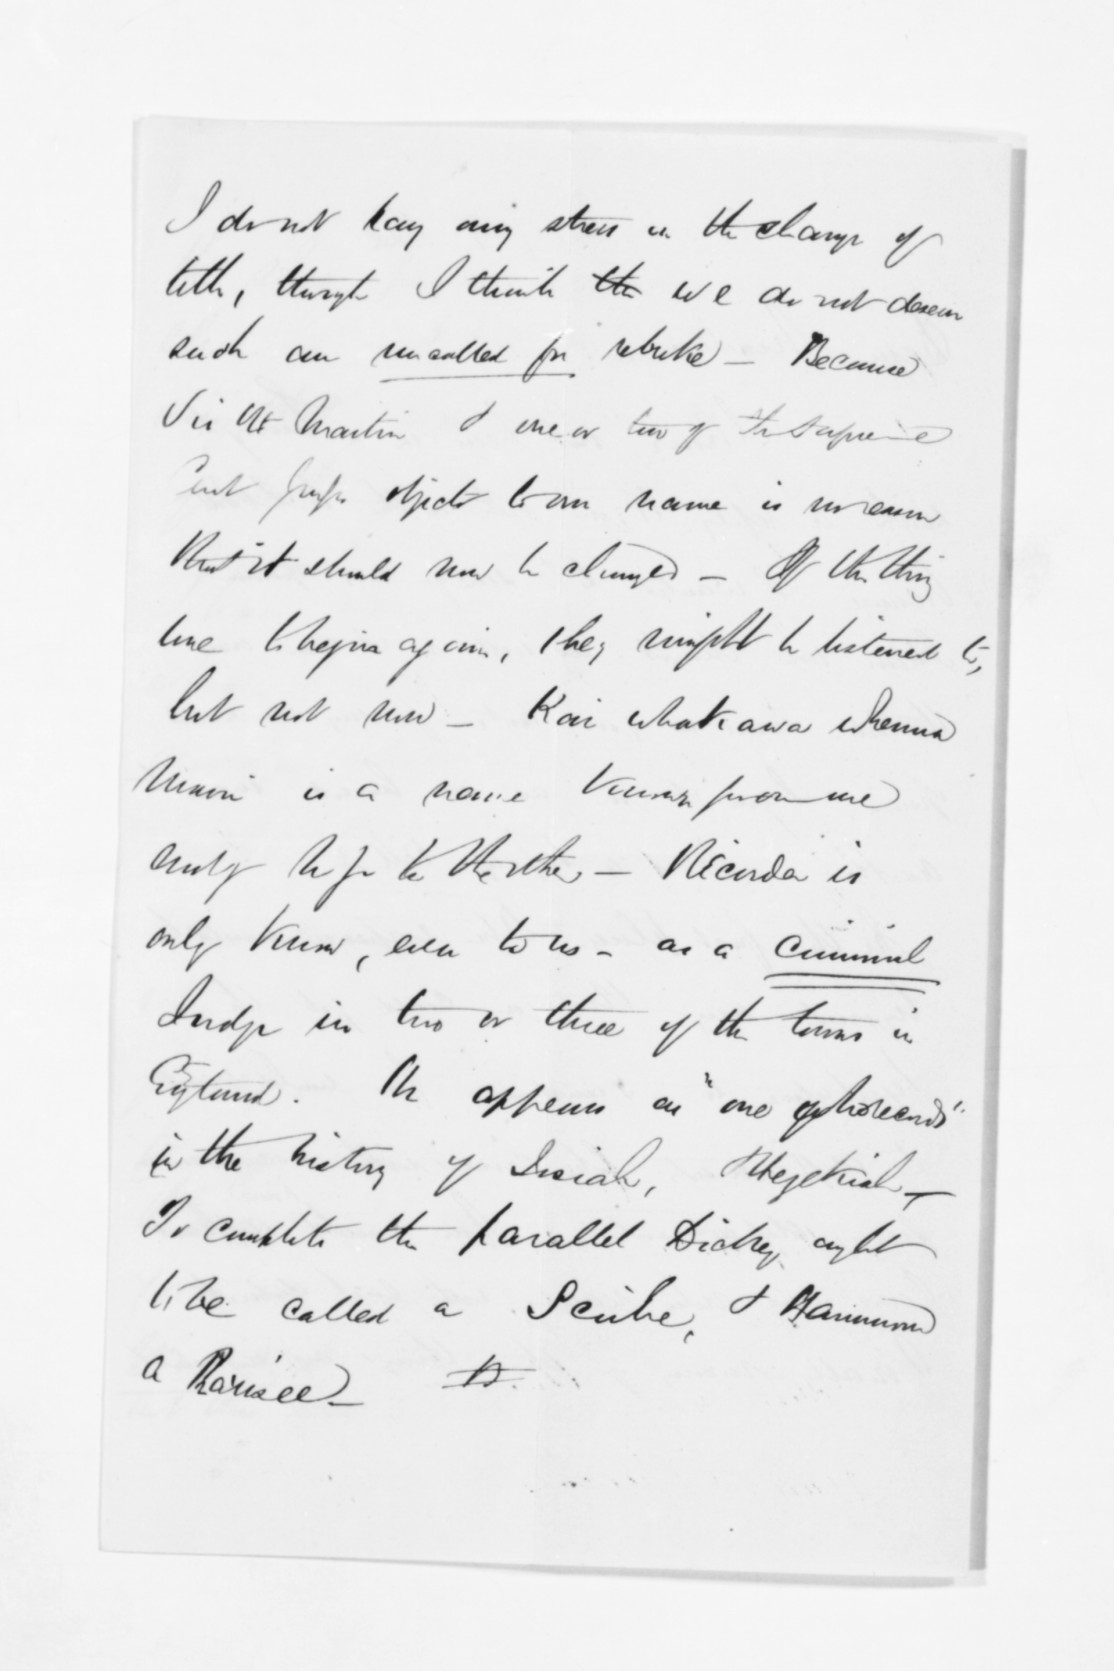 I do not lay any stress on the change of
title, though I think the we do not deserve
such an uncalled for rebuke – Because
Sir Wm Martin & one or two of the Supreme
Court Judges objects to our name is no reason
that it should now be changed – If the thing
were to begin again, they might be listened to,
but not now – Kai whakawa whenua
Maori is a name known from one
end of to the other – Recorder is
only known, even to us – as a criminal
Judge in two or three of the towns in
England. He appears as "one who records"
in the history of Isiah, & Hezekiah –
To complete the parallel Dickey ought
to be called a Scribe, &
a Parisee –